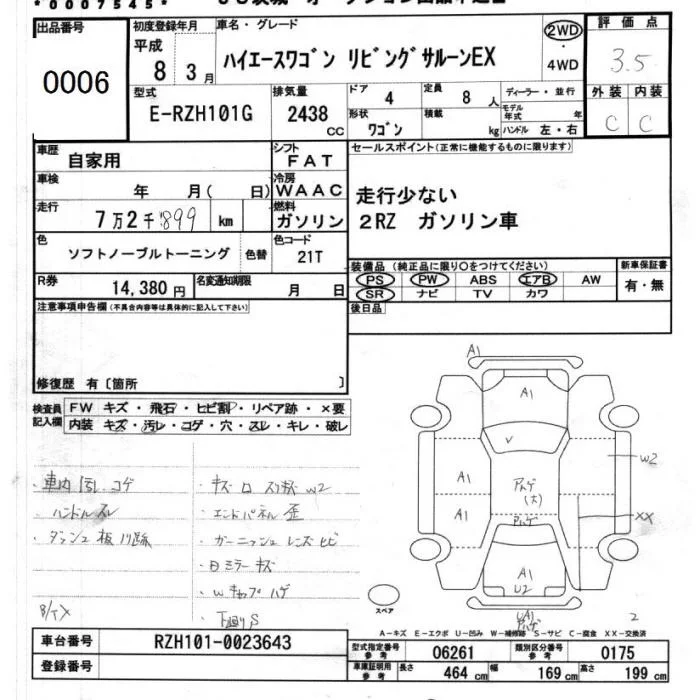 *0007545*
出品番号 初度登録年月 車名・グレード 2WD 評価点
0006 平成 8年 3月 ハイエースワゴン リビングサルーンEX ・ 4WD 3.5
型式 排気量 ドア 4 定員 8人 ディーラー・並行 外装 内装
E-RZH101G 2438cc 形状 ワゴン 積載 kg モデル年式 年 ハンドル 左・右 C C
車歴 自家用 シフト FAT セールスポイント(正常に機能するものに限ります)
車検 年 月( 日) 冷房 WAAC 走行少ない
走行 7万2千899km 燃料 ガソリン 2RZ ガソリン車
色 ソフトノーブルトーニング 色替 色コード 21T
装備品(純正品に限り○をつけてください) 新車保証書
R券 14,380円 名変通知期限 月 日 PS PW ABS エアB AW 有・無
SR ナビ TV カワ
注意事項申告欄(不具合内容等は具体的に記入して下さい) 後日品
修復歴 有〔箇所 〕
検査員記入欄 FW キズ・飛石・ヒビ割・リペア跡・×要
内装 キズ・汚レ・コゲ・穴・スレ・キレ・破レ
A1
A1
A1
A1
W2
XX
A1
U2
・車内汚レ コゲ
・ハンドルスレ
・エンドパネル歪
・ガーニッシュ レンズヒビ
・下廻りS
スペア
2
A-キズ E-エクボ U-凹み W-補修跡 S-サビ C-腐食 XX-交換済
車台番号 RZH101-0023643 型式指定番号 参考 06261 類別区分番号 参考 0175
登録番号 車庫証明用 参考 長さ 464cm 幅 169cm 高さ 199cm